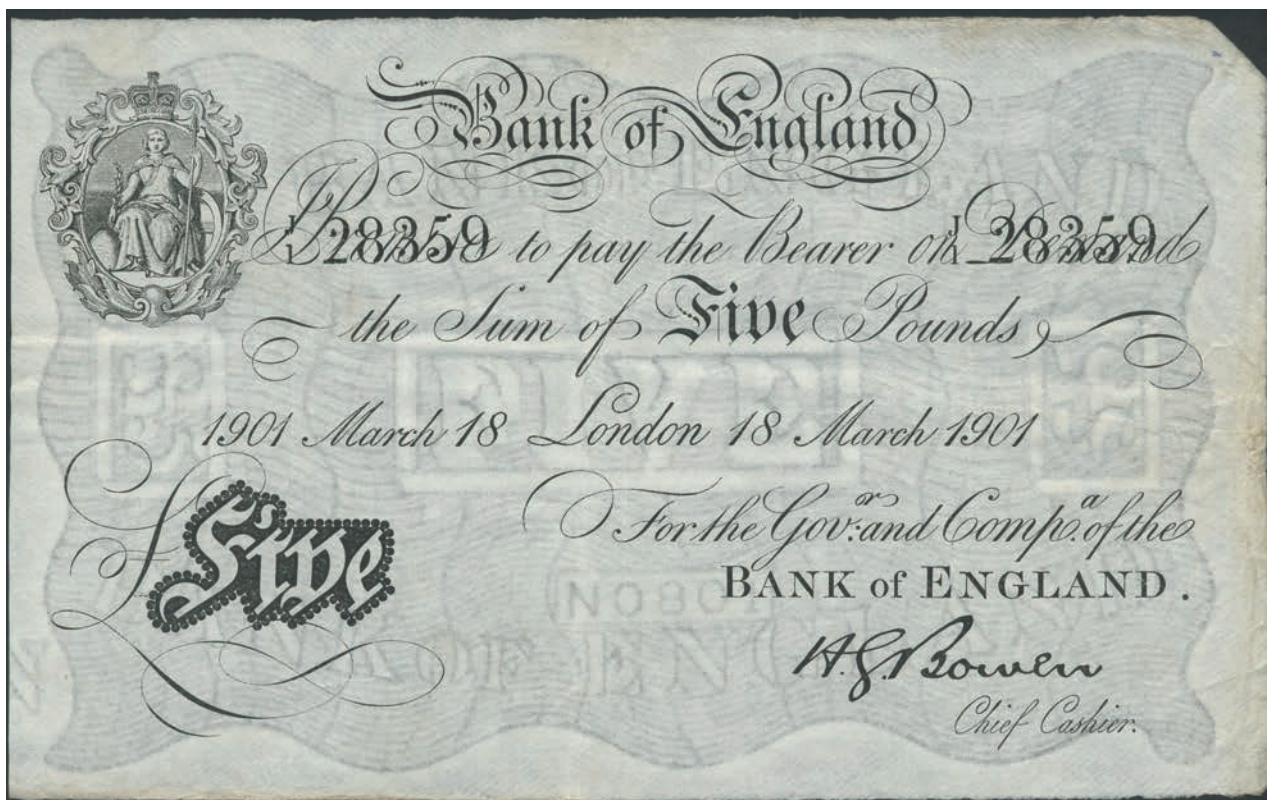 Bank of England
28359 to pay the Bearer on 28359
the Sum of Five Pounds
1901 March 18 London 18 March 1901
For the Gov.r and Comp.a of the
£Five
BANK of ENGLAND.
H.G. Bowen
Chief Cashier.